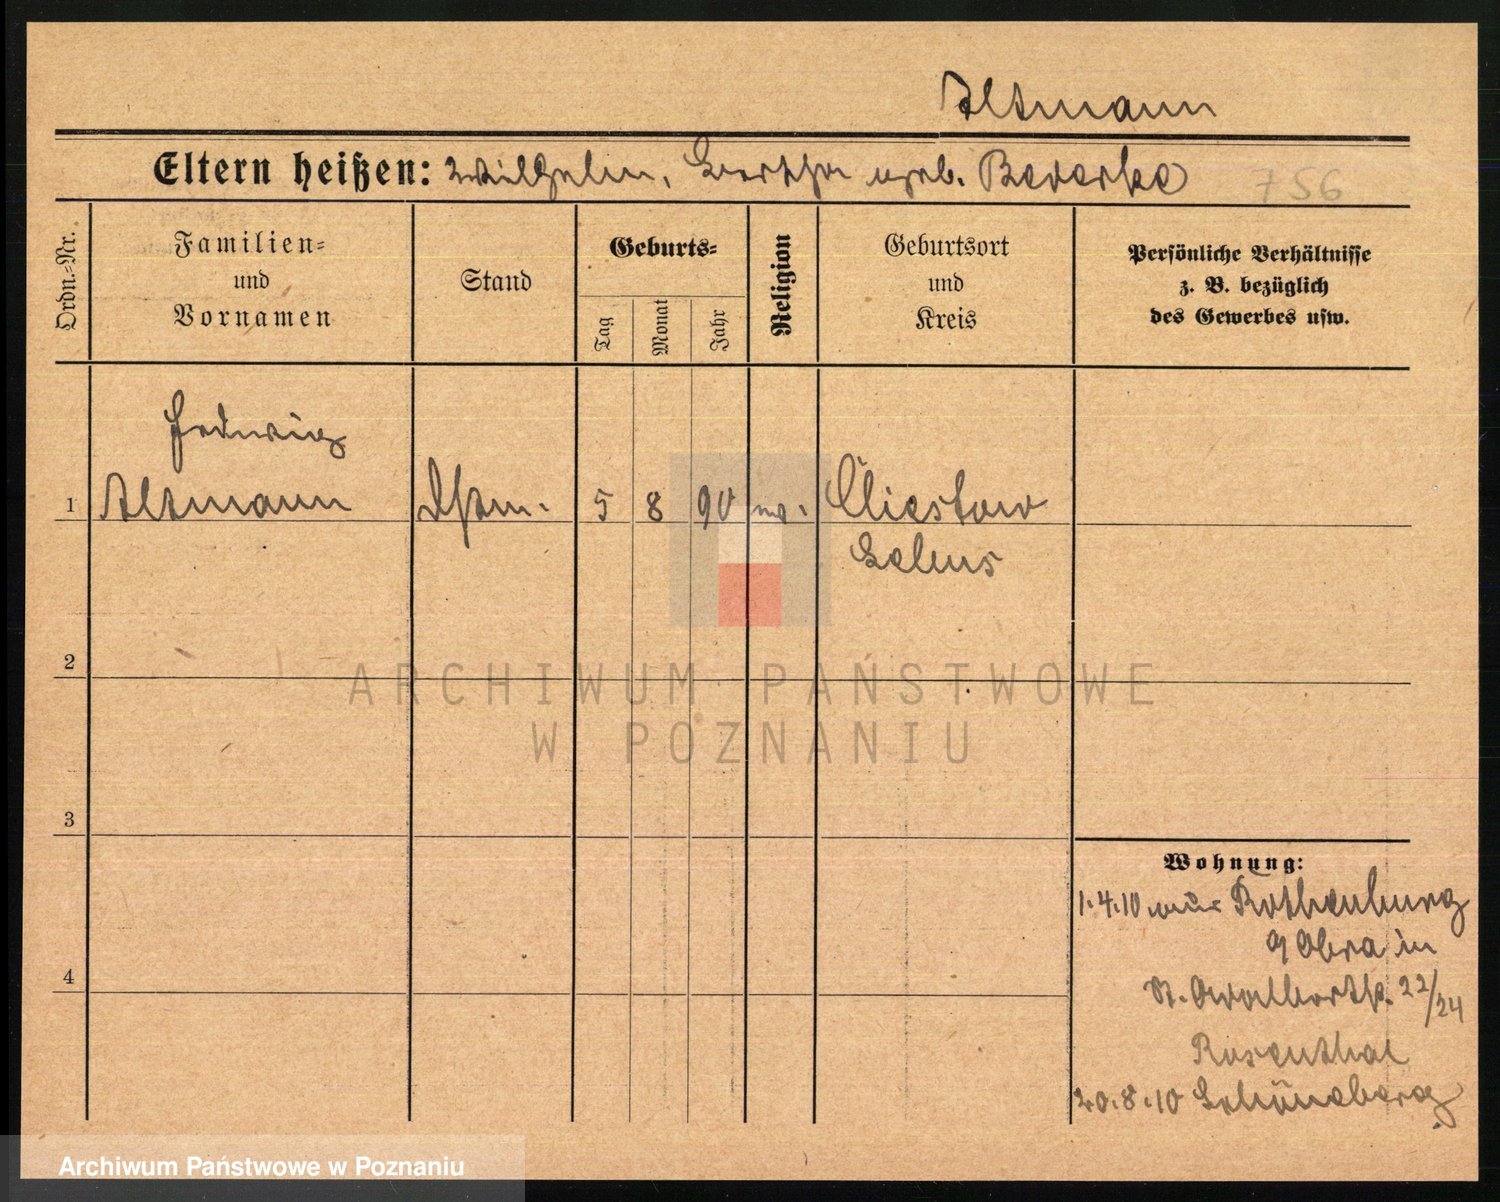 Altmann
Eltern heißen: Wilhelm, Bertha geb. 756
Ordn.=Nr.
Familien=
und
Vornamen
Stand
Geburts=
Tag
Monat
Jahr
Religion
Geburtsort
und
Kreis
Persönliche Verhältnisse
z. B. bezüglich
des Gewerbes usw.
Hedwig
1 Altmann Dstm. 5 8 90 Cliestow
Lebus
2
ARCHIWUM PAŃSTWOWE
W POZNANIU
3
4
Wohnung:
1.4.10 aus Rothenburg
Obra in
St. Adalbertstr. 22/24
Rosenthal
20.8.10 Schöneberg
Archiwum Państwowe w Poznaniu